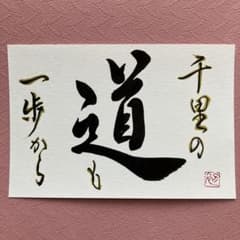 千里の
道も
一歩から